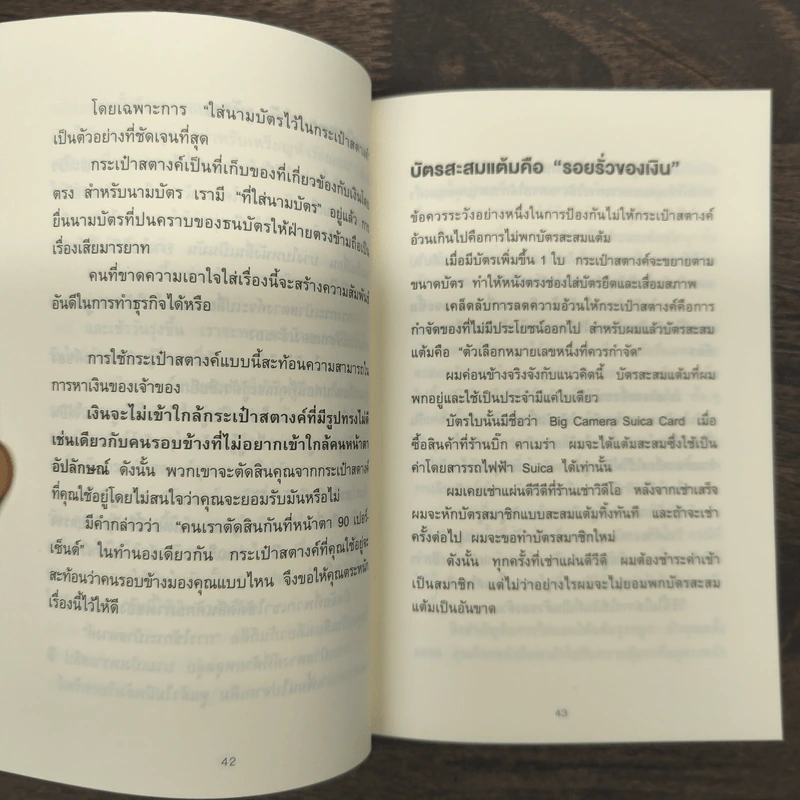 โดยเฉพาะการ “ใส่นามบัตรไว้ในกระเป๋าสตางค์”
เป็นตัวอย่างที่ชัดเจนที่สุด
กระเป๋าสตางค์เป็นที่เก็บของที่เกี่ยวข้องกับเงินโดย
ตรง สำหรับนามบัตร เรามี “ที่ใส่นามบัตร” อยู่แล้ว การ
ยื่นนามบัตรที่ปนคราบของธนบัตรให้ฝ่ายตรงข้ามถือเป็น
เรื่องเสียมารยาท
คนที่ขาดความเอาใจใส่เรื่องนี้จะสร้างความสัมพันธ์
อันดีในการทำธุรกิจได้หรือ
การใช้กระเป๋าสตางค์แบบนี้สะท้อนความสามารถใน
การหาเงินของเจ้าของ
เงินจะไม่เข้าใกล้กระเป๋าสตางค์ที่มีรูปทรงไม่ดี
เช่นเดียวกับคนรอบข้างที่ไม่อยากเข้าใกล้คนหน้าตา
อัปลักษณ์ ดังนั้น พวกเขาจะตัดสินคุณจากกระเป๋าสตางค์
ที่คุณใช้อยู่โดยไม่สนใจว่าคุณจะยอมรับมันหรือไม่
มีคำกล่าวว่า “คนเราตัดสินกันที่หน้าตา 90 เปอร์-
เซ็นต์” ในทำนองเดียวกัน กระเป๋าสตางค์ที่คุณใช้อยู่จะ
สะท้อนว่าคนรอบข้างมองคุณแบบไหน จึงขอให้คุณตระหนัก
เรื่องนี้ไว้ให้ดี
42
บัตรสะสมแต้มคือ “รอยรั่วของเงิน”
ข้อควรระวังอย่างหนึ่งในการป้องกันไม่ให้กระเป๋าสตางค์
อ้วนเกินไปคือการไม่พกบัตรสะสมแต้ม
เมื่อมีบัตรเพิ่มขึ้น 1 ใบ กระเป๋าสตางค์จะขยายตาม
ขนาดบัตร ทำให้หนังตรงช่องใส่บัตรยืดและเสื่อมสภาพ
เคล็ดลับการลดความอ้วนให้กระเป๋าสตางค์คือการ
กำจัดของที่ไม่มีประโยชน์ออกไป สำหรับผมแล้วบัตรสะสม
แต้มคือ “ตัวเลือกหมายเลขหนึ่งที่ควรกำจัด”
ผมค่อนข้างจริงจังกับแนวคิดนี้ บัตรสะสมแต้มที่ผม
พกอยู่และใช้เป็นประจำมีแค่ใบเดียว
บัตรใบนั้นมีชื่อว่า Big Camera Suica Card เมื่อ
ซื้อสินค้าที่ร้านบิ๊ก คาเมร่า ผมจะได้แต้มสะสมซึ่งใช้เป็น
ค่าโดยสารรถไฟฟ้า Suica ได้เท่านั้น
ผมเคยเช่าแผ่นดีวีดีที่ร้านเช่าวิดีโอ หลังจากเช่าเสร็จ
ผมจะหักบัตรสมาชิกแบบสะสมแต้มทิ้งทันที และถ้าจะเช่า
ครั้งต่อไป ผมจะขอทำบัตรสมาชิกใหม่
ดังนั้น ทุกครั้งที่เช่าแผ่นดีวีดี ผมต้องชำระค่าเข้า
เป็นสมาชิก แต่ไม่ว่าอย่างไรผมจะไม่ยอมพกบัตรสะสม
แต้มเป็นอันขาด
43